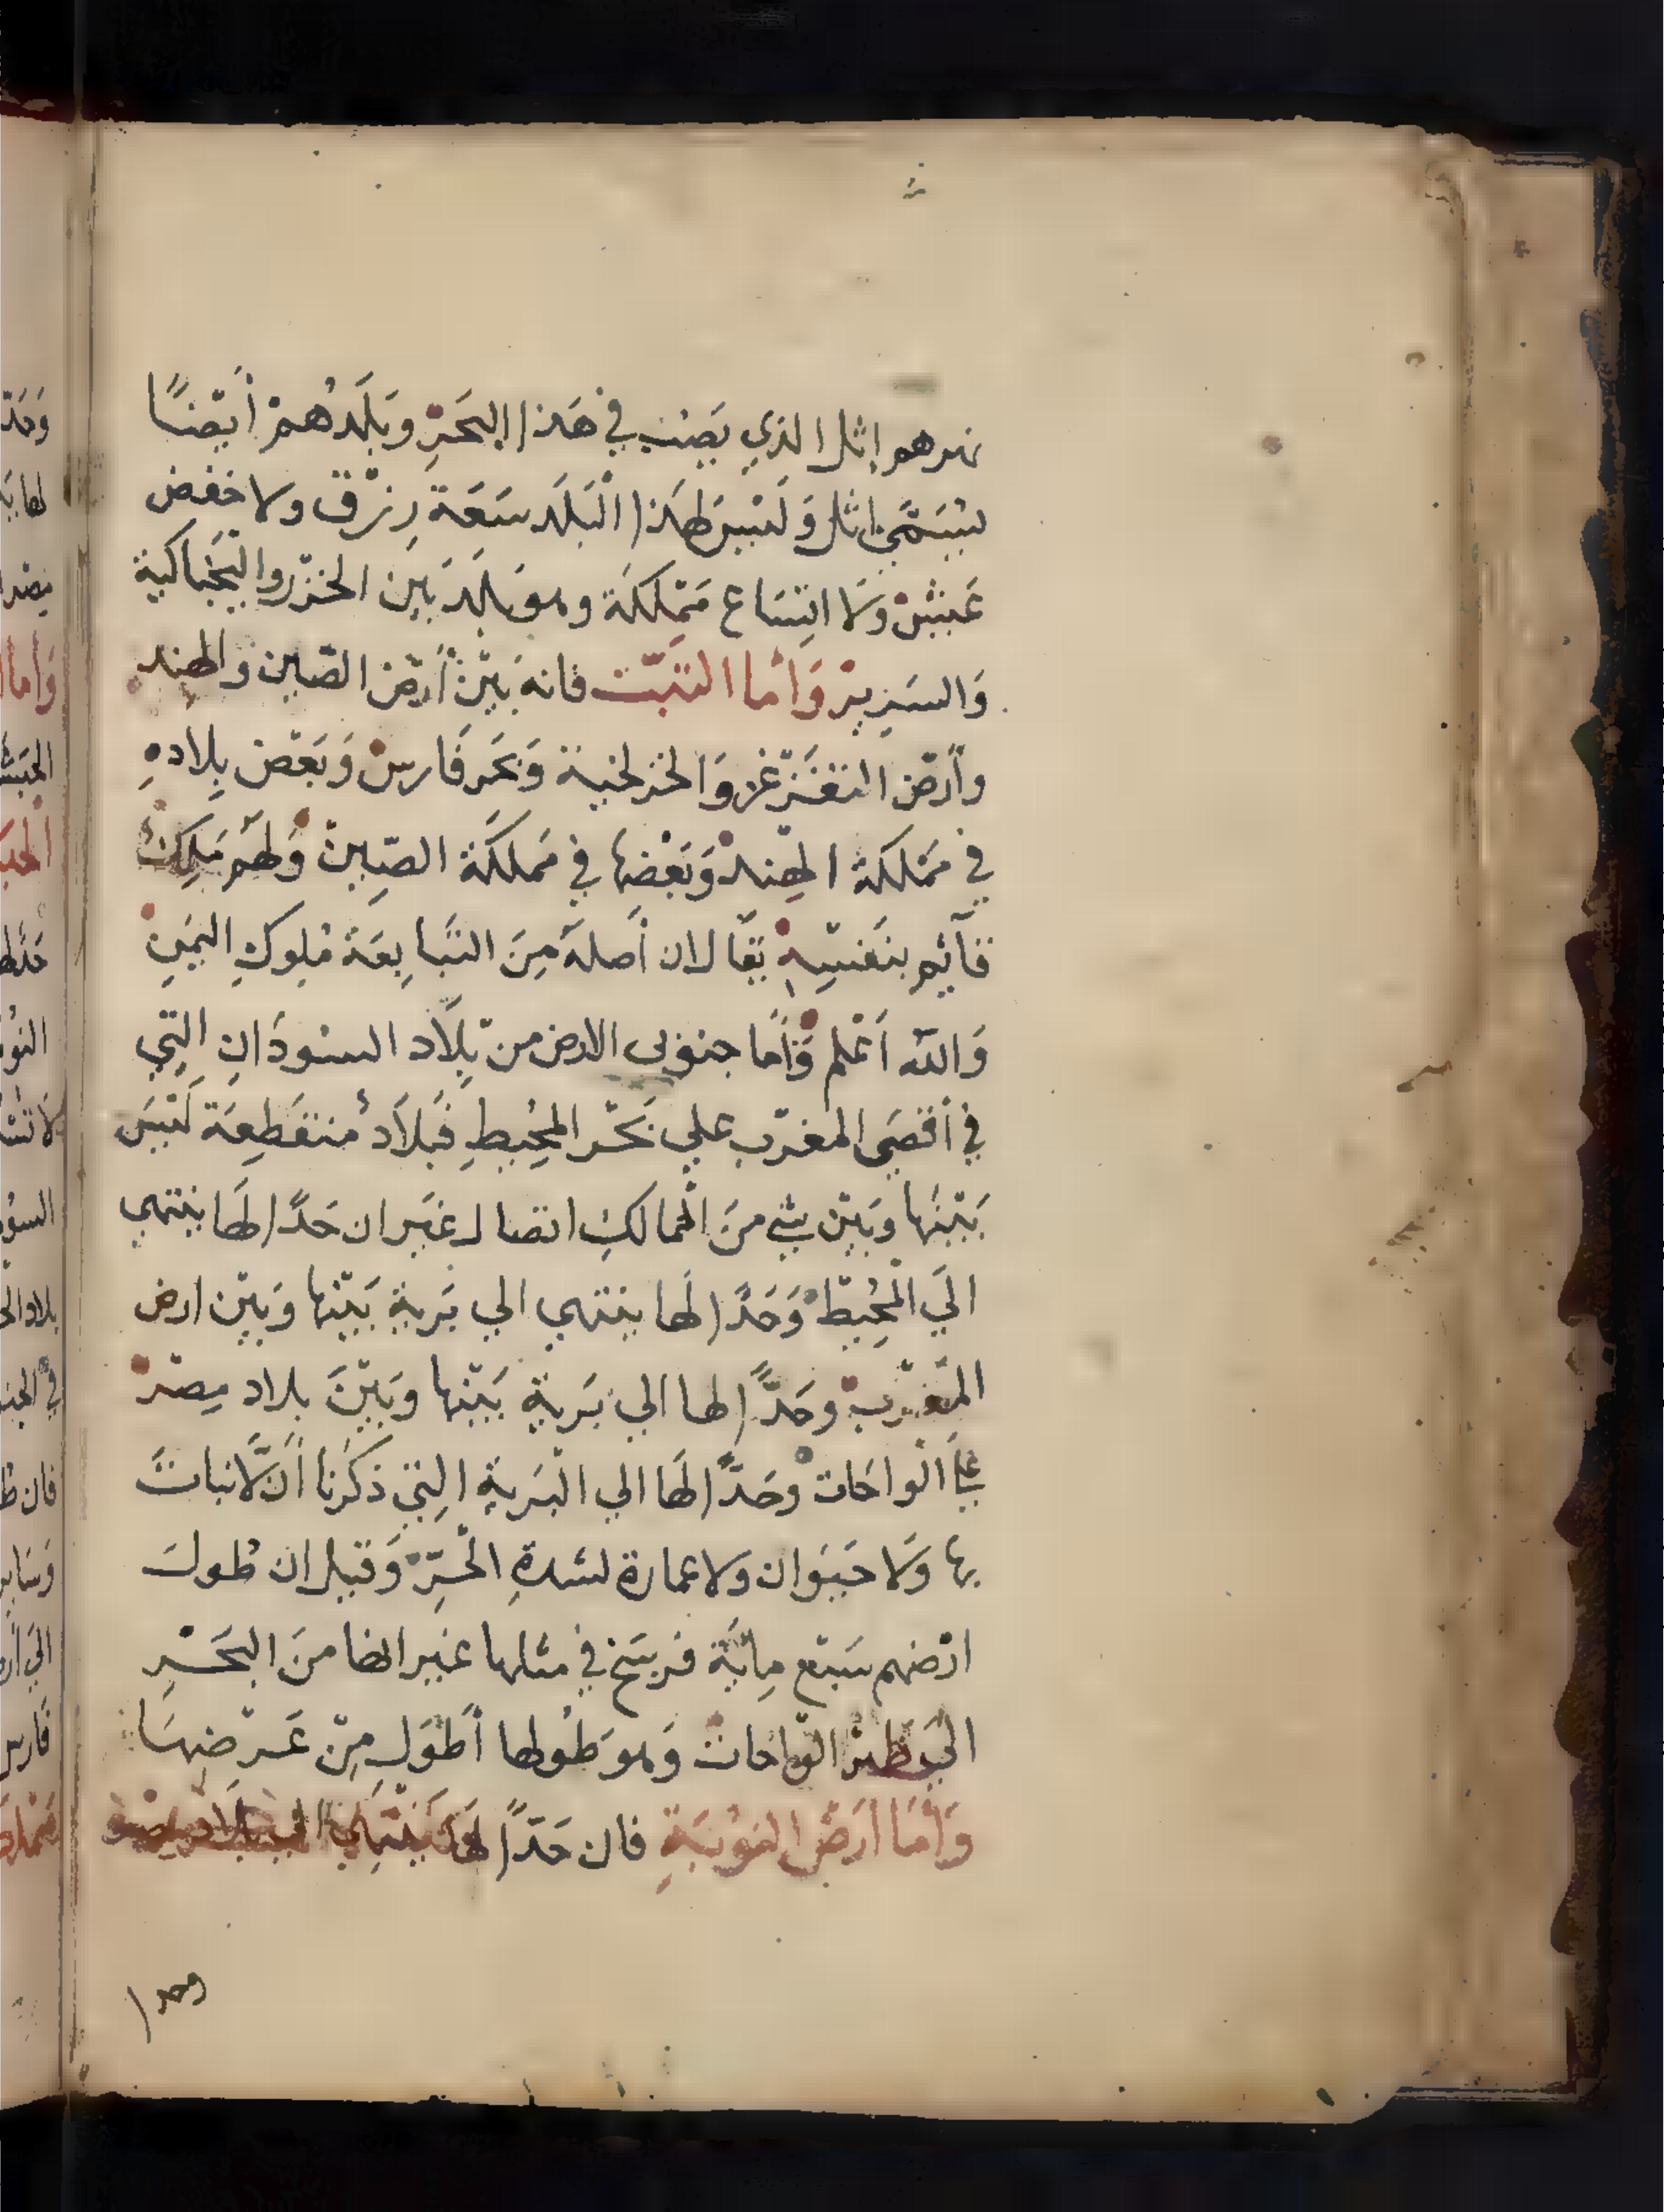 نهرهم إثل الذي يَصُب في هَذا البَحَرِ وبَلَدُهُمْ أَيْضًا
يُسَمَّى اثل وَلَيْسَ لهَذا الْبَلَد سَعَة رِزْق ولا خفض
عَيْشْ وَلَا اتِسَاع مَمْلَكَة وهو بَلَد بَين الخزر والبَجَناكية
وَالسَرِيرْ وَأما التبّت فانه بَيْنْ أرْض الصّين والهند
وأرْض التغزغز وَالخزلخية وَبَحَر فَارسْ وَبَعْض بِلادهِ
في مَمْلَكة الهِندْ وَبَعْضها في مَملَكَة الصِّينْ وَلهَم مَلِكْ
قآئم بنَفسِهِ يقَال ان أصلهَ مِنَ التبَابِعَة مُلوكِ اليَمَنِ
وَالله أعْلم وَأما جنوبي الارض من بِلَاد السُودَانِ التِي
في أقصَى المغرْب علي بَحْر المحُيطِ فَبلَادُ مُنقَطِعَة لَيْسَ
بَيْنَها وبَيْن شي منَ المَمالكِ اتصال غير ان حَدًّا لهَا ينتهي
الَي المُحِيطْ وَحَدًّا لهَا ينتهي الي بَرية بَيْنها وَبَيْن ارض
المَغْربْ وحَدًّا لها الي بَريةٍ بَيْنها وَبَيْنَ بلاد مِصْرْ
علَى الواحَات وحَدًّا لهَا الي البَريةِ التِي ذكَرنا أن لَّا نباتَ
بها وَلا حَيَوان ولا عمارة لشدةِ الحَرِّ وَقيل ان طُولَ
ارْضهم سَبْع مِائَة فرسَخ في مثلها غير انها منَ البَحَـْرِ
الَي ظهْر الوَاحات وَهو طُولها أطوَل مِنْ عَـرْضِهَا
وَأمَا أرَضْ النُوبَةِ فان حَدًّا لهَا يَنْتَهِي الي بلاد مصر
وحدا